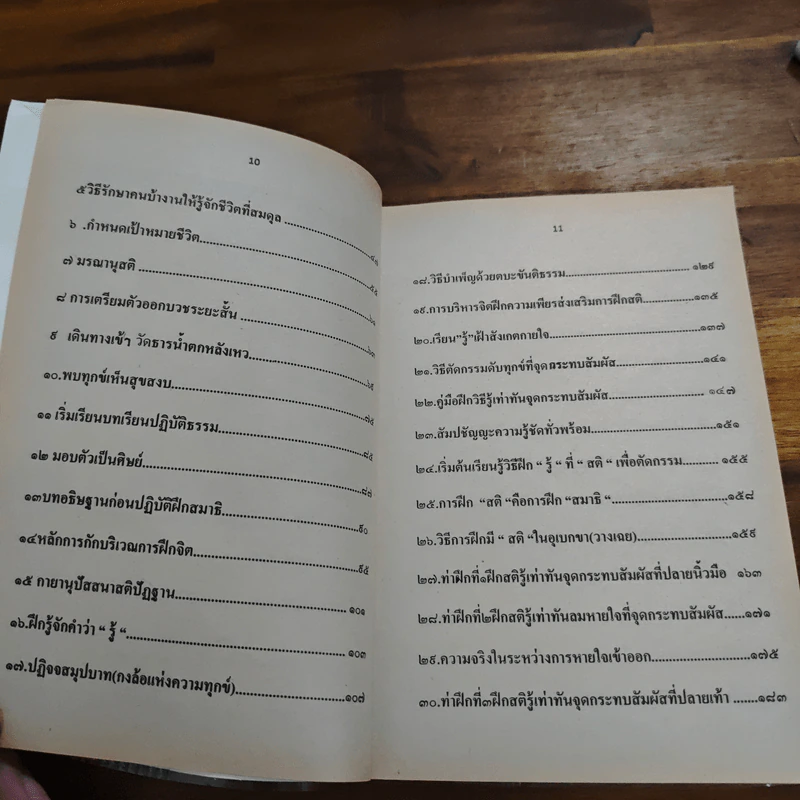 10
๕วิธีรักษาคนบ้างานให้รู้จักชีวิตที่สมดุล ..................
๖ .กำหนดเป้าหมายชีวิต........................................
๗ มรณานุสติ ........................................๕๕
๘ การเตรียมตัวออกบวชระยะสั้น ........................
๙ เดินทางเข้า วัดธารน้ำตกหลังเหว........................
๑๐.พบทุกข์เห็นสุขสงบ........................................
๑๑ เริ่มเรียนบทเรียนปฏิบัติธรรม........................๘๕
๑๒ มอบตัวเป็นศิษย์........................................๘๗
๑๓บทอธิษฐานก่อนปฏิบัติฝึกสมาธิ........................๙๐
๑๔หลักการกักบริเวณการฝึกจิต........................๙๕
๑๕ กายานุปัสสนาสติปัฏฐาน........................ ๑๐๑
๑๖.ฝึกรู้จักคำว่า “ รู้ “........................ ๑๐๓
๑๗.ปฏิจจสมุปบาท(กงล้อแห่งความทุกข์)........................๑๐๗
11
๑๘.วิธีบำเพ็ญด้วยตบะขันติธรรม........................ ๑๒๙
๑๙.การบริหารจิตฝึกความเพียรส่งเสริมการฝึกสติ............๑๓๕
๒๐.เรียน”รู้”เฝ้าสังเกตกายใจ........................๑๓๗
๒๑.วิธีตัดกรรมดับทุกข์ที่จุดกระทบสัมผัส........................๑๔๑
๒๒.คู่มือฝึกวิธีรู้เท่าทันจุดกระทบสัมผัส........................ ๑๔๗
๒๓.สัมปชัญญะความรู้ชัดทั่วพร้อม........................๑๕๑
๒๔.เริ่มต้นเรียนรู้วิธีฝึก “ รู้ “ ที่ “ สติ “ เพื่อตัดกรรม........... ๑๕๕
๒๕.การฝึก “สติ “คือการฝึก “สมาธิ “........................๑๕๘
๒๖.วิธีการฝึกมี “ สติ “ในอุเบกขา(วางเฉย)........................๑๕๙
๒๗.ท่าฝึกที่๑ฝึกสติรู้เท่าทันจุดกระทบสัมผัสที่ปลายนิ้วมือ ๑๖๓
๒๘.ท่าฝึกที่๒ฝึกสติรู้เท่าทันลมหายใจที่จุดกระทบสัมผัส......๑๗๑
๒๙.ความจริงในระหว่างการหายใจเข้าออก........................๑๗๕
๓๐.ท่าฝึกที่๓ฝึกสติรู้เท่าทันจุดกระทบสัมผัสที่ปลายเท้า .......๑๘๓